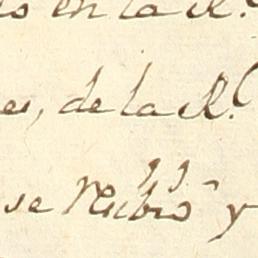 s en la Rl.
es, de la Rl.
se Recibio y